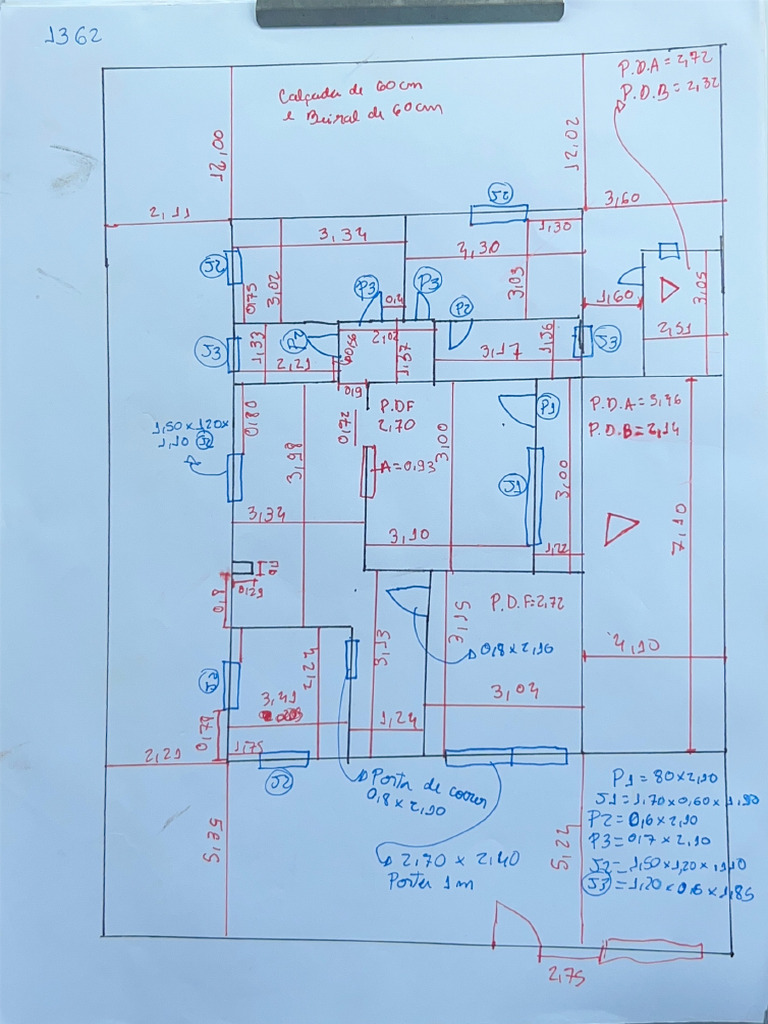 1362
P.D.A = 2,72
P.D.B = 2,32
Calçada de 60cm
e Beiral de 60cm
12,00
12,02
2,11
3,60
J2
3,34
1,30
4,30
J2
3,02
3,03
3,05
0,75
P3
P3
0,4
P2
1,60
2,51
J3
1,33
P2
2,02
1,37
3,17
1,36
J3
2,21
0,9
P.DF
2,70
P1
P.D.A = 5,46
P.D.B = 2,14
1,50 x 1,20 x
1,10 J2
0,80
0,72
3,00
3,98
A=0,93
J1
3,00
7,10
3,34
3,10
1,22
0,29
0,8
P.D.F=2,72
3,15
0,8 x 2,10
4,10
J2
2,24
3,53
3,41
3,04
0,78
1,24
2,21
1,75
J2
Porta de correr
0,8 x 2,10
P1 = 80 x 2,10
J1 = 1,70 x 0,60 x 1,50
P2 = 0,6 x 2,10
P3 = 0,7 x 2,10
J2 = 1,50 x 1,20 x 1,10
J3 = 1,20 x 0,6 x 1,85
5,24
2,70 x 2,40
Porta 1m
2,75